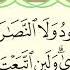 ودُ وَلَا ٱلنَّصَٰرَ
ىٰ ۗ وَلَئِنِ ٱتَّبَعْتَ